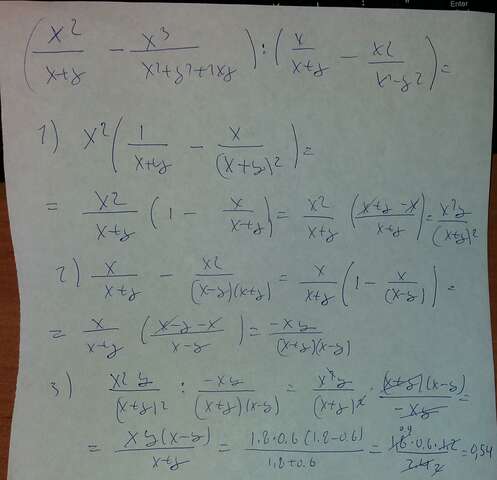 Enter
(x²/(x+y) - x³/(x²+y²+2xy)) : (x/(x+y) - x2/(x²-y2)) =
1) x²(1/(x+y) - x/(x+y)²) =
= x2/(x+y) (1 - x/(x+y)) = x2/(x+y) ((x+y-x)/(x+y)) = x²y/(x+y)²
2) x/(x+y) - x2/((x-y)(x+y)) = x/(x+y) (1 - x/(x-y)) =
= x/(x+y) ((x-y-x)/(x-y)) = -xy/((x+y)(x-y))
3) x2y/(x+y)2 : -xy/((x+y)(x-y)) = x²y/(x+y)² · (x+y)(x-y)/(-xy) =
= xy(x-y)/(x+y) = 1.8·0.6(1.8-0.6)/(1.8+0.6) = 1.8·0.6·1.2/2.4 = 0,54